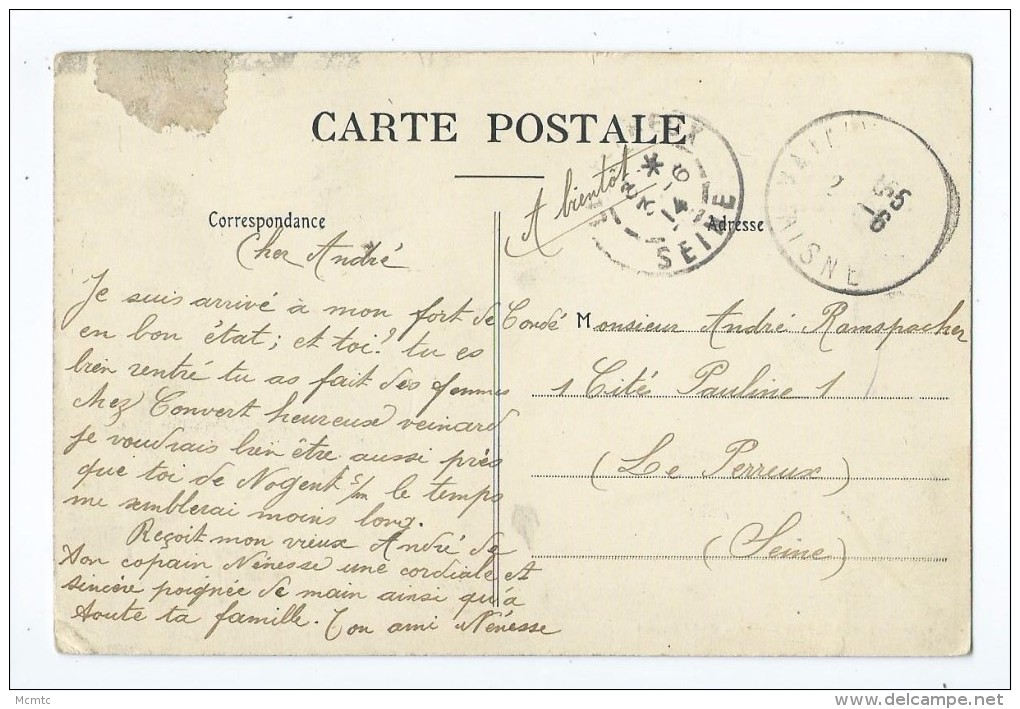 CARTE POSTALE
Correspondance
Adresse
A bientôt
SEINE
AISNE
Cher André
Je suis arrivé à mon fort de Condé
en bon état; et toi? tu es
bien rentré tu as fait des femmes
chez Convert heureuse veinard
je voudrais bien être aussi près
que toi de Nogent s/m le temps
me semblerai moins long.
Reçoit mon vieux André de
ton copain Nénesse une cordiale et
sincère poignée de main ainsi qu'à
toute ta famille. Ton ami Nénesse
Monsieur André Ramspacher
1 Cité Pauline 1
(Le Perreux)
(Seine)
Mcmtc
delcampe.net